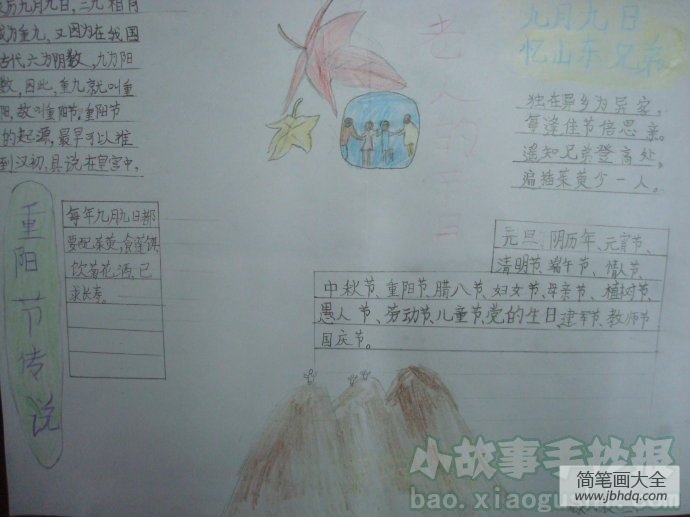 农历九月九日,二九相同
成为重九,又因为在我国
古代,六为阴数,九为阳
数,因此,重九就叫重
阳,故叫重阳节。重阳节
的起源,最早可以推
到汉初,具说在皇宫中,
重阳节传说
每年九月九日都
要配茱萸,食蓬饵,
饮菊花酒,已
求长寿。
老人的节日
九月九日
忆山东兄弟
独在异乡为异客,
每逢佳节倍思亲。
遥知兄弟登高处,
遍插茱萸少一人。
元旦、阴历年、元宵节、
清明节、端午节、情人节、
中秋节、重阳节、腊八节、妇女节、母亲节、植树节、
愚人节、劳动节、儿童节、党的生日、建军节、教师节
国庆节。
小故事手抄报
bao.xiaogushi.com
简笔画大全
www.jbhdq.com